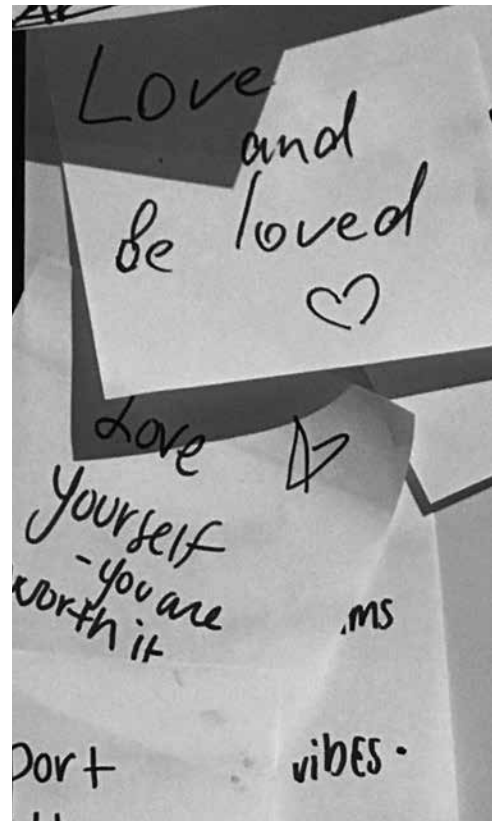 Love
and
be loved
Love
yourself
-you are
worth it
vibes.